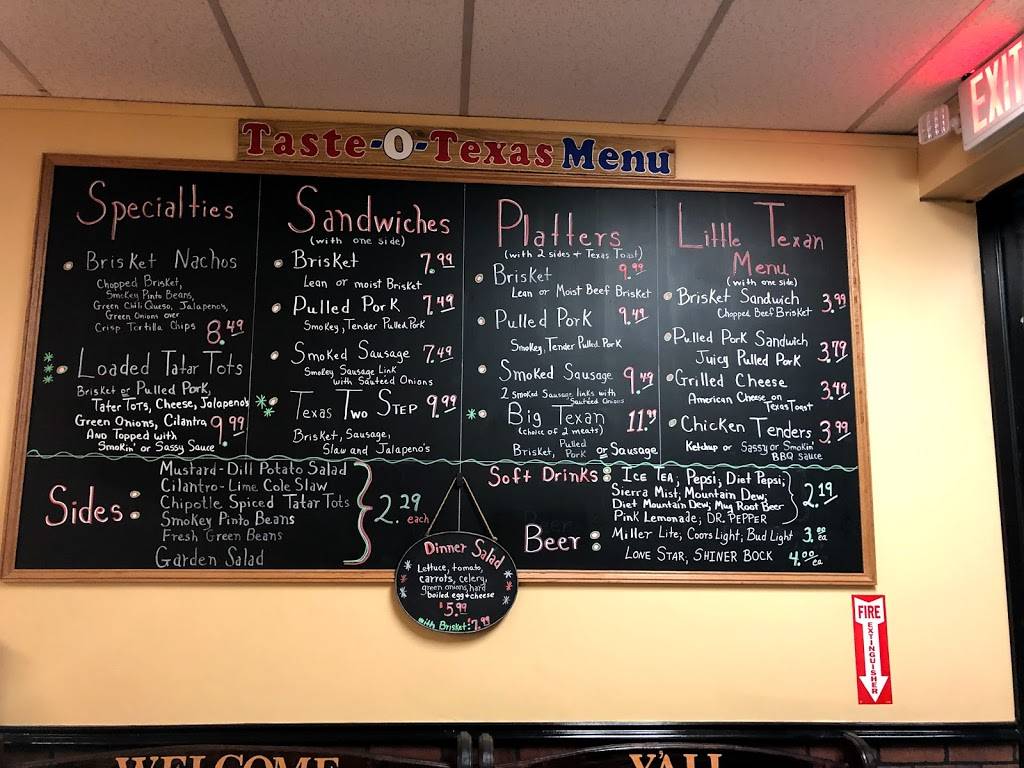 Taste-O-Texas Menu
EXIT
Specialties
Brisket Nachos
Chopped Brisket,
Smokey Pinto Beans,
Green Chili Queso, Jalapeno's,
Green Onions over
Crisp Tortilla Chips 8.49
Loaded Tatar Tots
Brisket or Pulled Pork,
Tater Tots, Cheese, Jalapeno's
Green Onions, Cilantro 9.99
And Topped with
Smokin' or Sassy Sauce
Sandwiches
(with one side)
Brisket 7.99
Lean or moist Brisket
Pulled Pork 7.49
Smokey, Tender Pulled Pork
Smoked Sausage 7.49
Smokey Sausage Link
with Sauteed Onions
Texas Two Step 9.99
Brisket, Sausage,
Slaw and Jalapeno's
Platters
(with 2 sides + Texas Toast)
Brisket 9.99
Lean or Moist Beef Brisket
Pulled Pork 9.49
Smokey, Tender Pulled Pork
Smoked Sausage 9.49
2 Smoked Sausage links with
Sauteed Onions
Big Texan 11.99
(choice of 2 meats)
Brisket, Pulled Pork or Sausage
Little Texan
Menu
(with one side)
Brisket Sandwich 3.99
Chopped Beef Brisket
Pulled Pork Sandwich
Juicy Pulled Pork 3.79
Grilled Cheese
American Cheese on 3.49
Texas Toast
Chicken Tenders 3.99
Ketchup or Sassy or Smokin
BBQ Sauce
Sides:
Mustard-Dill Potato Salad
Cilantro-Lime Cole Slaw
Chipotle Spiced Tatar Tots
Smokey Pinto Beans
Fresh Green Beans
Garden Salad
2.29
each
Soft Drinks: Ice Tea; Pepsi; Diet Pepsi;
Sierra Mist; Mountain Dew;
Diet Mountain Dew; Mug Root Beer
Pink Lemonade; Dr. Pepper
2.19
Beer: Miller Lite; Coors Light; Bud Light 3.00 ea
Lone Star, Shiner Bock 4.00 ea
Dinner Salad
Lettuce, tomato,
carrots, celery,
green onions, hard
boiled egg + cheese
$5.99
with Brisket: 7.99
FIRE
EXTINGUISHER
WELCOME Y'ALL